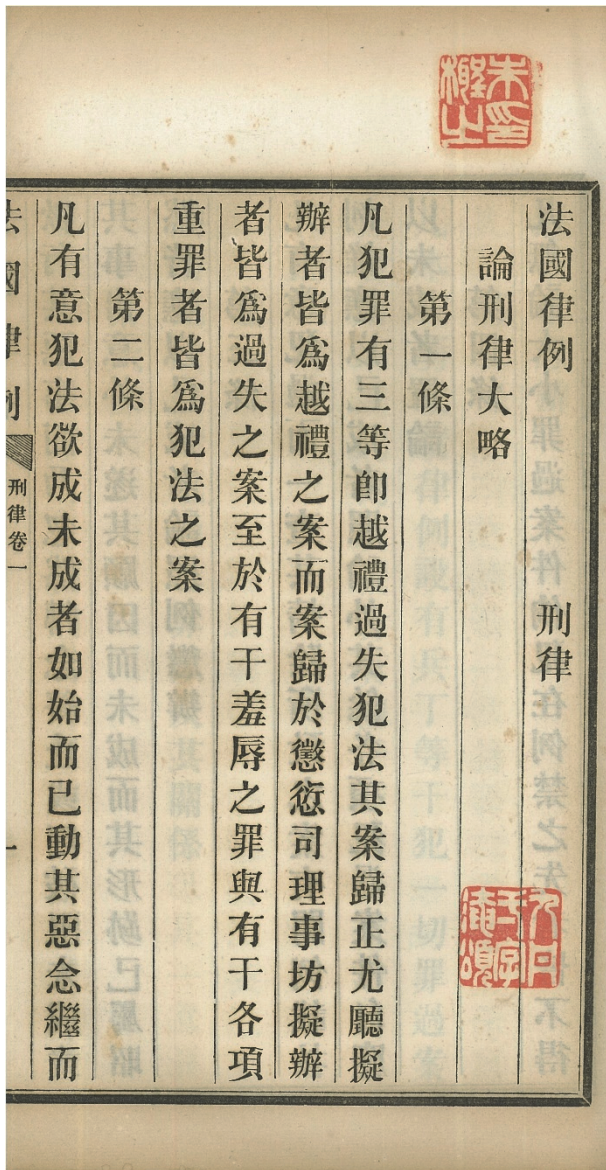 法國律例 刑律
論刑律大略
第一條
凡犯罪有三等卽越禮過失犯法其案歸正尤廳擬
辦者皆爲越禮之案而案歸於懲愆司理事坊擬辦
者皆爲過失之案至於有干羞辱之罪與有干各項
重罪者皆爲犯法之案
第二條
凡有意犯法欲成未成者如始而已動其惡念繼而
法國律例 刑律卷一 一